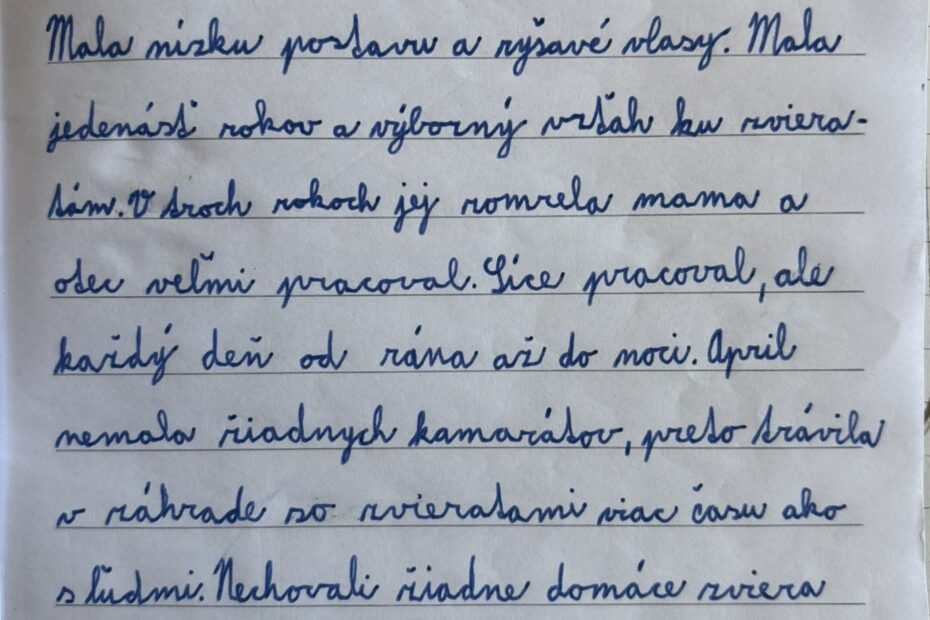 Mala nízku postavu a ryšavé vlasy. Mala
jedenásť rokov a výborný vzťah ku zviera-
tám. V troch rokoch jej zomrela mama a
otec veľmi pracoval. Síce pracoval, ale
každý deň od rána až do noci. April
nemala žiadnych kamarátov, preto trávila
v záhrade so zvieratami viac času ako
s ľuďmi. Nechovali žiadne domáce zviera